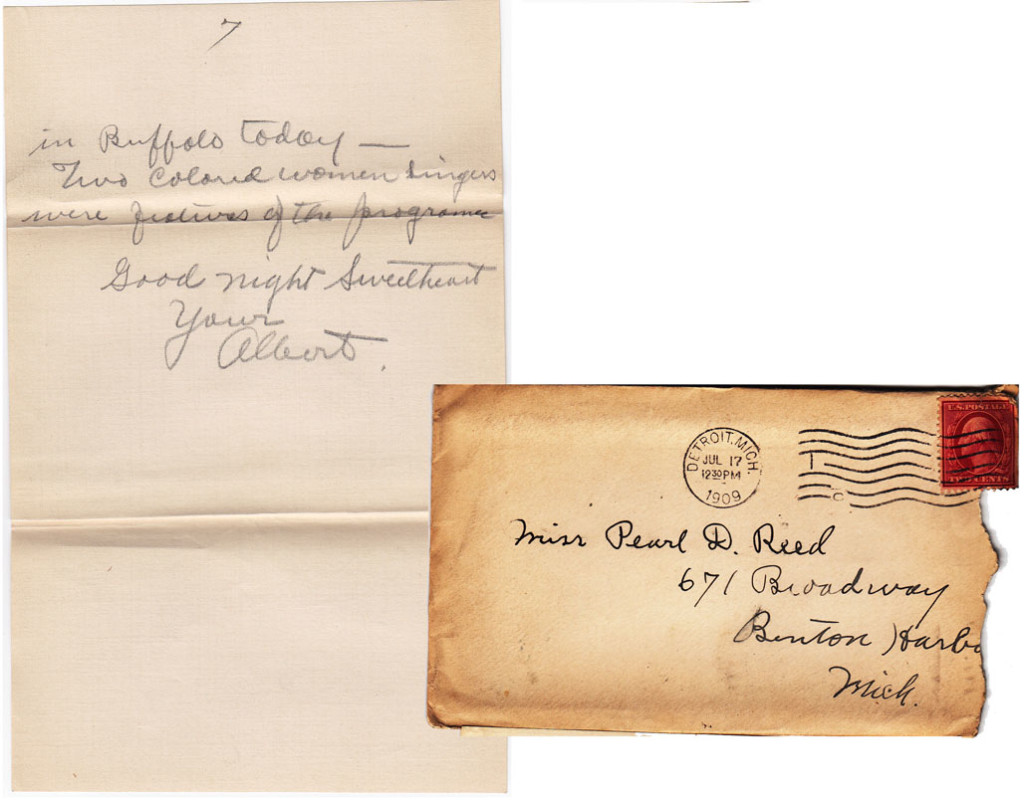 7
in Buffalo today —
Two Colored women Singers
were features of the programme
Good night Sweetheart
Your
Albert.
U.S. POSTAGE
TWO CENTS
DETROIT, MICH.
JUL 17
12 30 PM
1909
Miss Pearl D. Reed
671 Broadway
Benton Harbo
Mich.